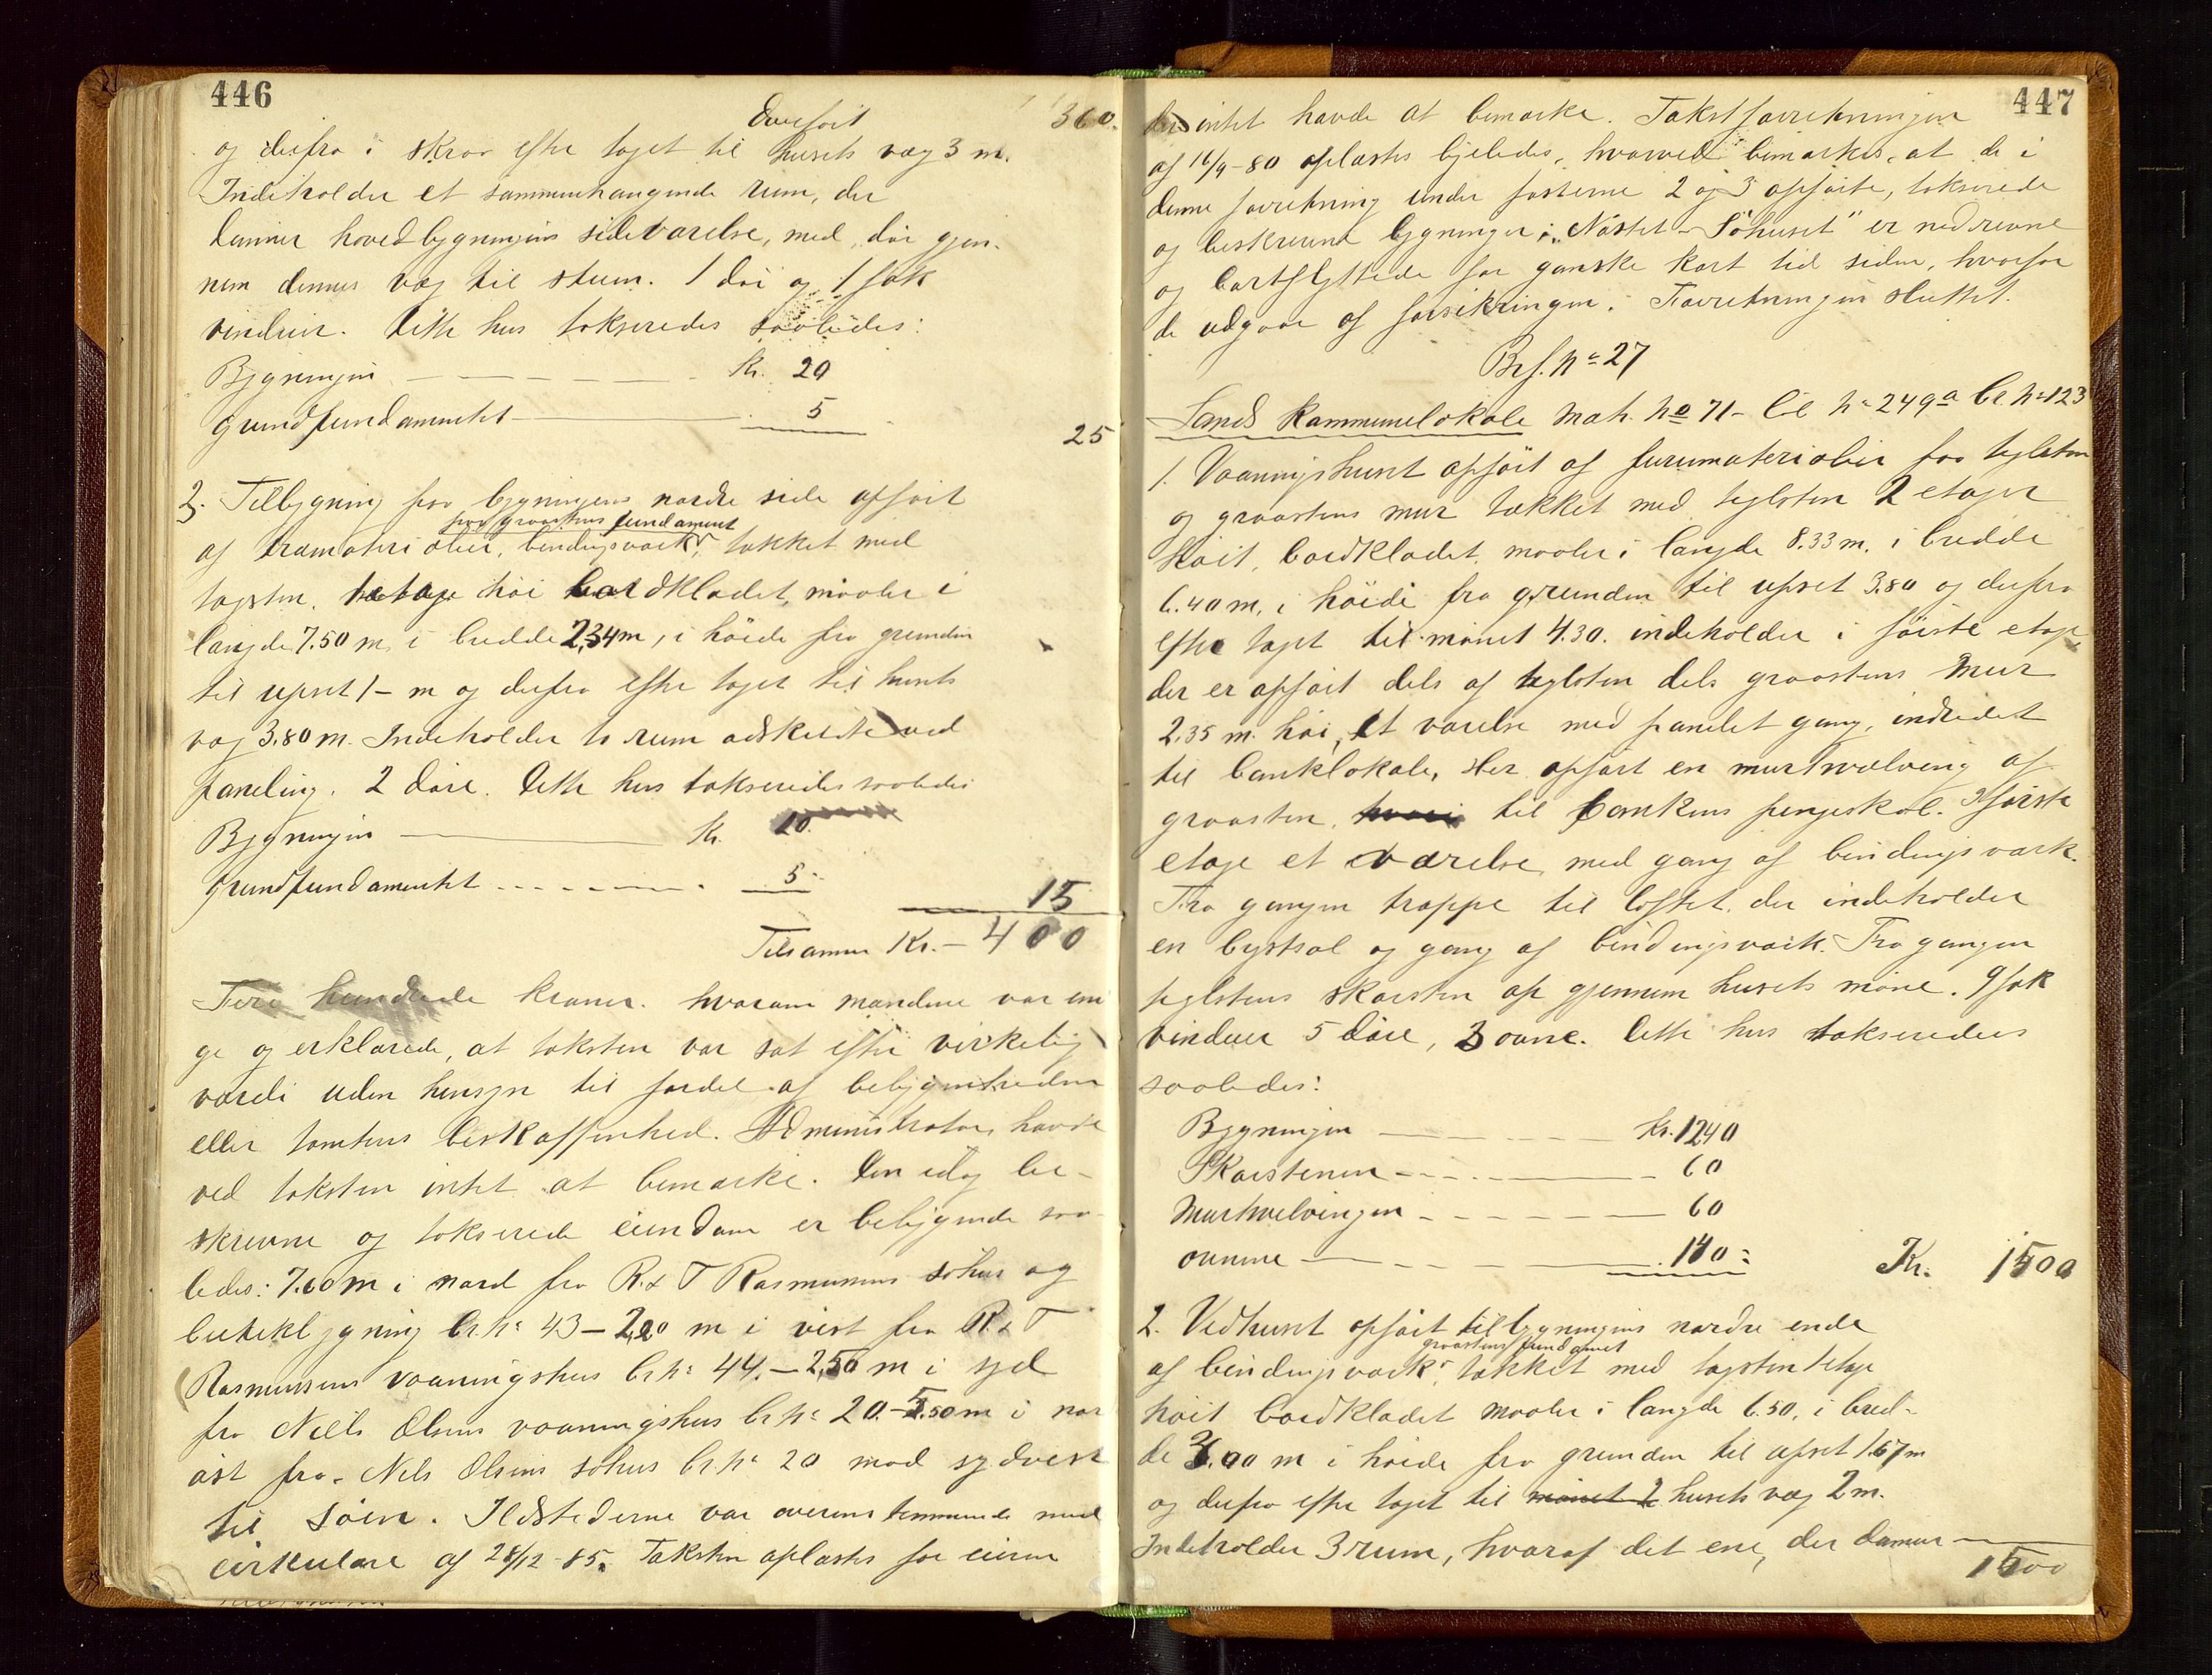 446
Overført 360.
og derfra i skraa efter taget til husets væg 3 m.
Indeholder et sammenhængende rum, der
danner hovedbygningens sideværelse, med dør gjen-
nem dennes væg til stuen. 1 dør og 1 fak
vinduer. Dette hus takseredes saaledes:
Bygningen Kr. 20
Grundfundamentet 5
25
3. Tilbygning paa bygningens nordre side opført
paa graastens fundament
af træmaterialier, bindingsværk, tækket med
tagsten, 1 etage høi bordklædet, maaler i
længde 7.50 m, i bredde 2,34 m, i høide fra grunden
til upset 1- m og derfra efter taget til husets
væg 3.80 m. Indeholder to rum adskildte ved
paneling. 2 døre. Dette hus takseredes saaledes
Bygningen Kr. 10.
Grundfundamentet 5-
15
Tilsammen Kr. - 400
Fire hundrede kroner. hvorom mændene var eni
ge og erklærede, at taksten var sat efter virkelig
værdi uden hensyn til fordel af beliggenheden
eller tomtens beskaffenhed. Administrator havde
ved taksten intet at bemærke. Den idag be-
skrevne og takserede eiendom er beliggende saa-
ledes: 7.60 m i nord fra R. & T Rasmussens søhus og
butikbygning br. nº 43 - 2,20 m i vest fra R & T
Rasmussens vaaningshus br. nº 44. - 2,50 m i syd
fra Niels Olsens vaaningshus br. nº 20. - 5.50 m i nor
øst fra Nils Olsens søhus br. nº 20 mod sydvest
til søen. Ildstederne var overensstemmende med
cirkulære af 28/12-85. Taksten oplæstes for eieren
447
der intet havde at bemærke. Takstforretningen
af 16/9-80 oplæstes ligeledes, hvorved bemærkes, at de i
denne forretning under posterne 2 og 3 opførte, takserede
og beskrevne bygninger i "Nøstet - Søhuset" er nedrevne
og bortflyttede for ganske kort tid siden, hvorfor
de udgaar af forsikringen. Forretningen sluttet.
Brf. nº 27
Sands Kommunelokale Mat. nº 71 - lb nº 249a br. nº 123
1. Vaaningshuset opført af furumaterialier paa teglsten
og graastens mur tækket med teglsten 2 etager
høit, bordklædet, maaler i længde 8.33 m, i bredde
6.40 m, i høide fra grunden til upset 3.80 og derfra
efter taget til mønet 4.30. indeholder i første etage,
der er opført dels af teglsten dels graastens mur
2.35 m. høi, et værelse med panelet gang, indredet
til banklokale, Her opført en murhvælving af
graasten, til bankens pengeskab. I første
etage et værelse med gang af bindingsværk.
Fra gangen trappe til loftet, der indeholder
en bystsal og gang af bindingsværk. Fra gangen
teglstens skorsten op gjennem husets møne. 9 fak
vinduer 5 døre, 3 ovne. Dette hus takseredes
saaledes:
Bygningen Kr. 1240
Skorstenen 60
Murhvelvingen 60
ovnene 140 = Kr. 1500
2. Vedhuset opført til bygningens nordre ende
graastens fundament
af bindingsværk, tækket med tagsten 1 etage
høit bordklædet maaler i længde 6.50, i bred-
de 2.00 m i høide fra grunden til upset 1.67 m
og derfra efter taget til mønet 2 husets væg 2 m.
Indeholder 3 rum, hvoraf det ene, der danner
1500